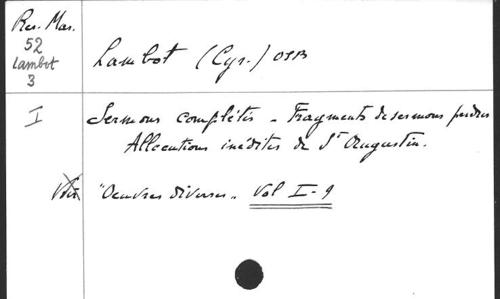 Rev. Mar.
52
Lambot
3
Lambot (Cyr.) OSB
I
Sermons complétés - Fragments de sermons perdus
Allocutions inédites de St Augustin.
Voir "Oeuvres diverses" Vol I-9